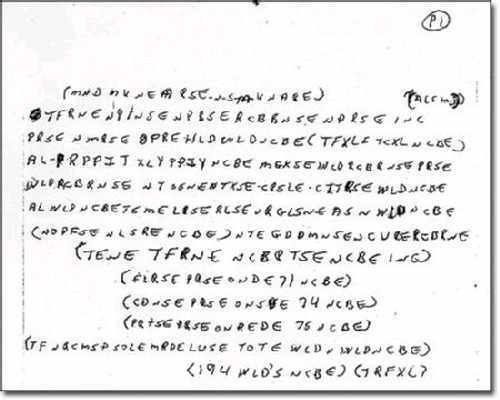 P1
(MND MKNEARSE-N-S-M-KNARE) (ACSM)
TFRNENPINSENPBSERCBRNSENPRSEINC
PRSENMRSEOPREHLDWLDNCBE(TFXLFTCXLNCBE)
AL-PRPPITXLYPPIYNCBE MGKSEWLDRCBRNSEPRSE
WLDRCBRNSE NTSGNENTXSE-CRSLE-CITRSEWLDNCBE
ALWLDNCBETSMELRSERLSEURGLSNEASNWLDNCBE
(NOPFSENLSRENCBE)NTEGDDMNSENCURERCBRNE
(TENE TFRNE NCBRTSENCBEINC)
(FLRSE PRSEONDE 71 NCBE)
(CDNSE PRSEONSDE 74 NCBE)
(PRTSE PRSEONREDE 75 NCBE)
(TFNQCMSPSOLEMRDELUSETOTEWLDNWLDNCBE)
(194 WLD'S NCBE)(TRFXL)